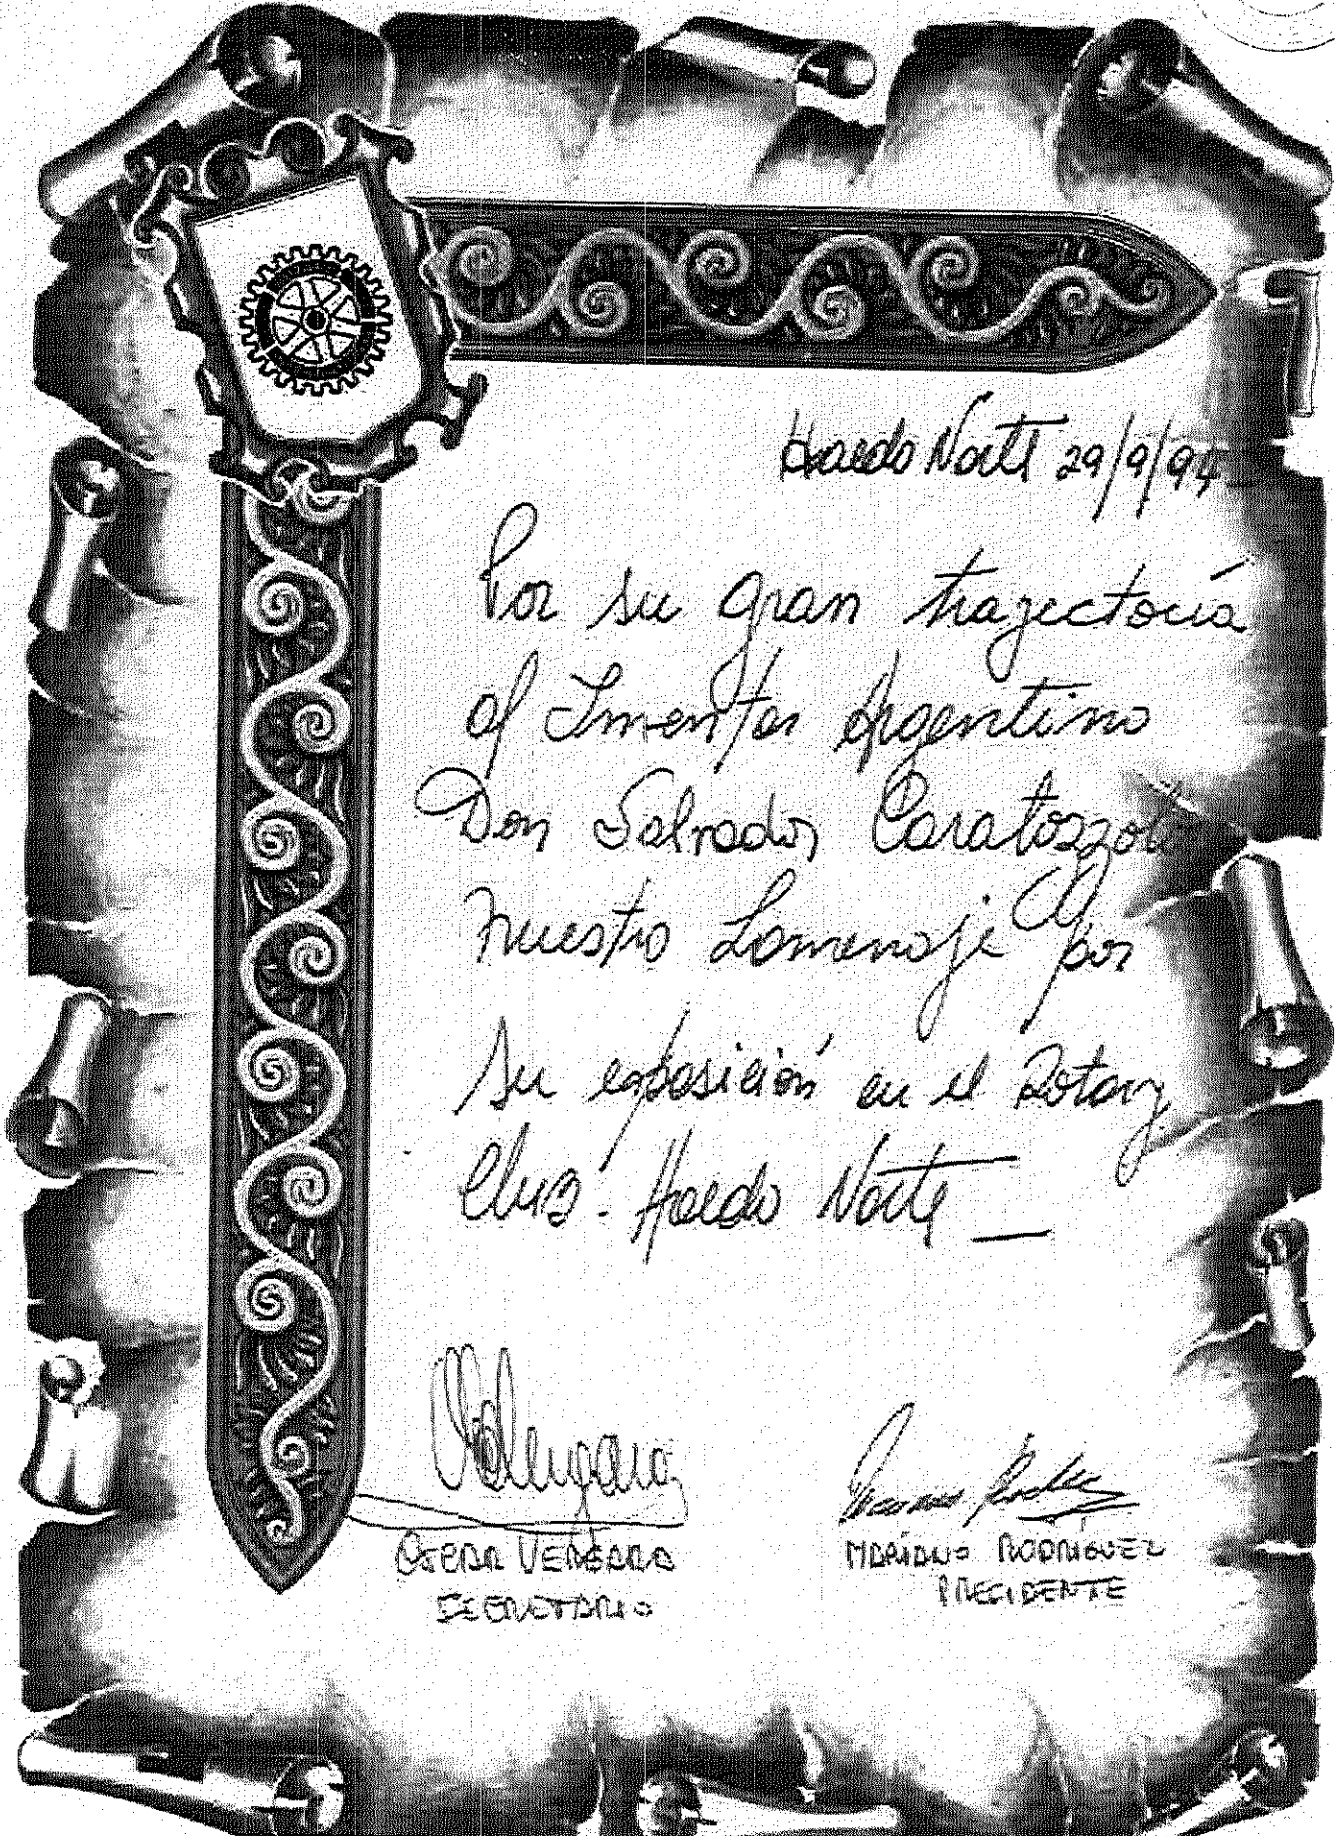 Haedo Norte 29/9/94
Por su gran trayectoria
al Inventor Argentino
Don Salvador Caratozzolo
nuestro homenaje por
su exposición en el Rotary
Club. Haedo Norte
OSCAR VERGARA
SECRETARIO
MARIANO RODRIGUEZ
PRESIDENTE